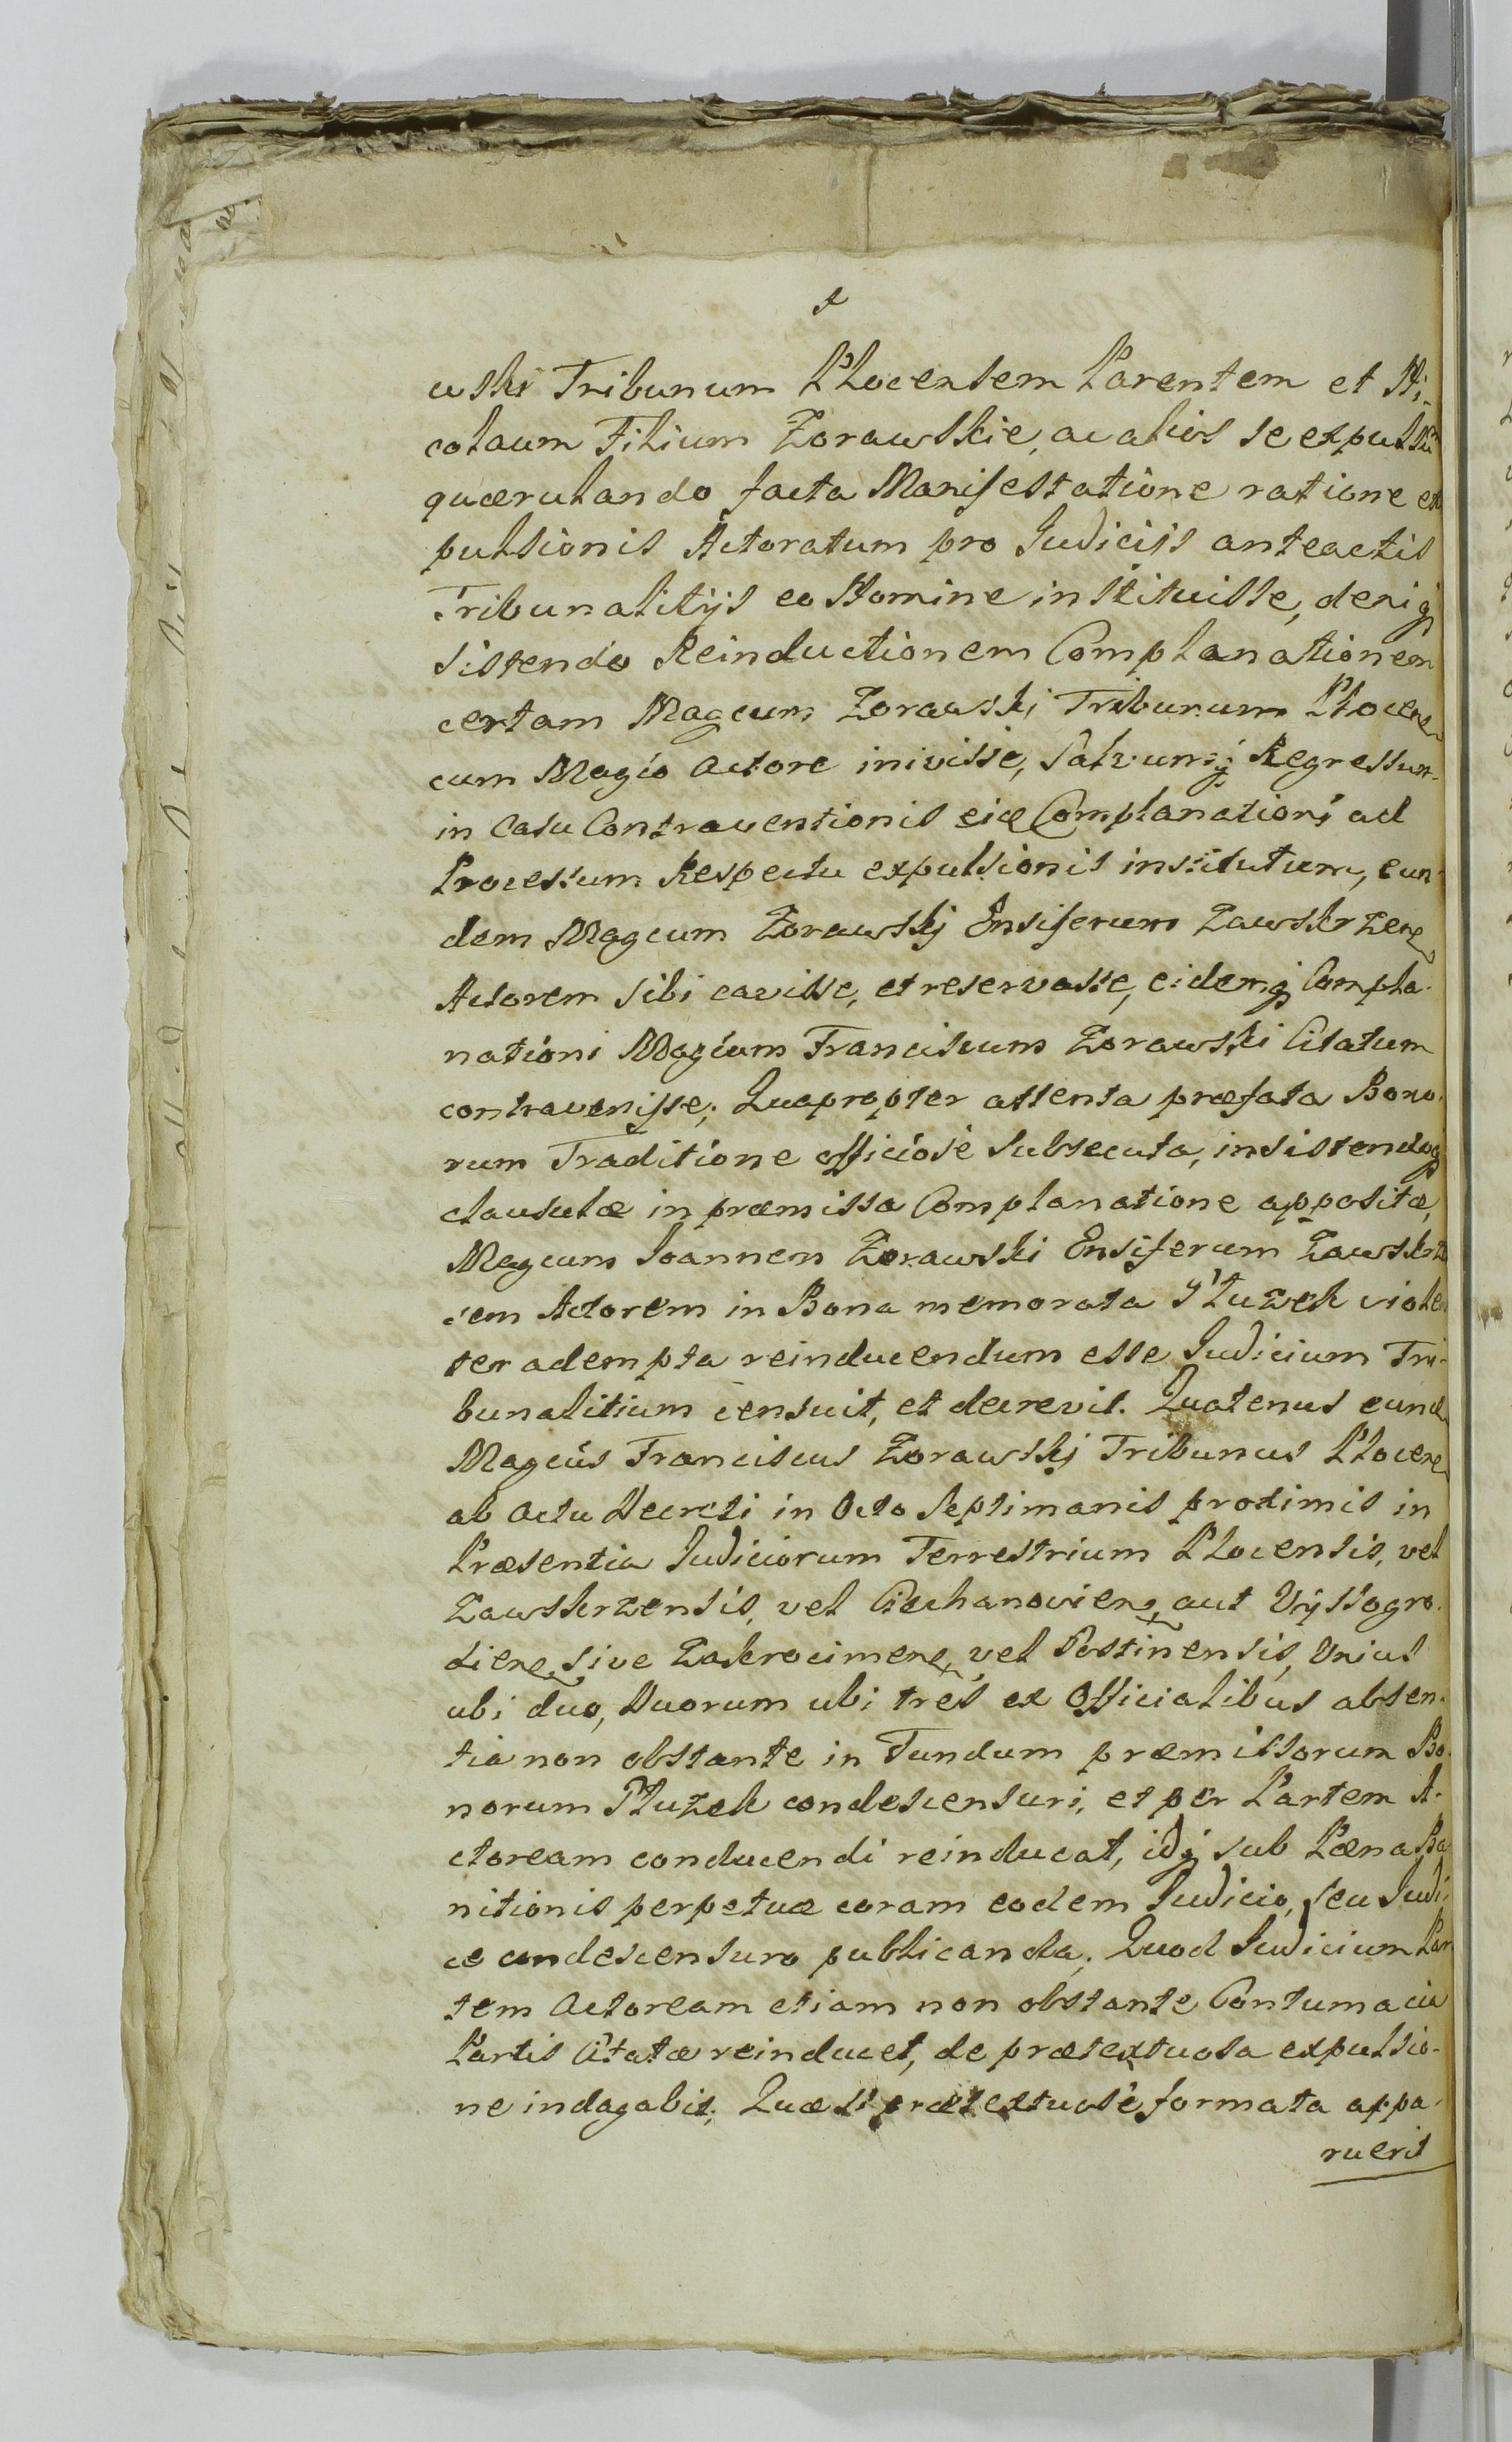 wski Tribunum Plocensem Parentem et Ni-
colaum Filium Zorawskie, ac alios se expulsū
quærulando facta Manifestatione ratione ex
pulsionis Actoratum pro Judicijs anteactis
Tribunalitijs eo Nomine instituisse, deniq
sistendo Reinductionem Complanationem
certam Magcum Zorawski Tribunum Plocens
cum Magco Actore inivisse, Salvumq Regressum
in Casu Contraventionis eidē Complanationi ad
Processum Respectu expulsionis institutum, eun-
dem Magcum Zorawskj Ensiferum Zawskrzens
Actorem sibi cavisse, et reservasse, eidemq Compla-
nationi Magcum Franciscum Zorawski Citatum
contravenisse; Quapropter attenta præfata Bono-
rum Traditione officiosè subsecuta, insistendoq
clausulæ in præmissa Complanatione appositæ,
Magcum Joannem Zorawski Ensiferum Zawskrz
sem Actorem in Bona memorata Płuzek violen
ter adempta reinducendum esse Judicium Tri-
bunalitium censuit, et decrevit. Quatenus eundē
Magcus Franciscus Zorawskj Tribunus Plocens
ab Actu Decreti in Octo Septimanis proximis in
Præsentia Judiciorum Terrestrium Plocensis, vel
Zawskrzensis, vel Ciechanoviens, aut Vyssogro-
diens, sive Zakrocimens, vel Postinensis, Unius
ubi duo, Duorum ubi tres ex Officialibus absen-
tia non obstante in Fundum præmissorum Bo-
norum Płuzek condescensuri, et per Partem A-
ctoream conducendi reinducat, idq sub Pæna Ba
nitionis perpetuæ coram eodem Judicio, seu Judi-
ce condescensuro publicanda; Quod Judicium Par
tem Actoream etiam non obstante Contumacia
Partis Citatæ reinducet, de prætextuosa expulsio-
ne indagabit; Quæ si prætextuosè formata appa-
ruerit